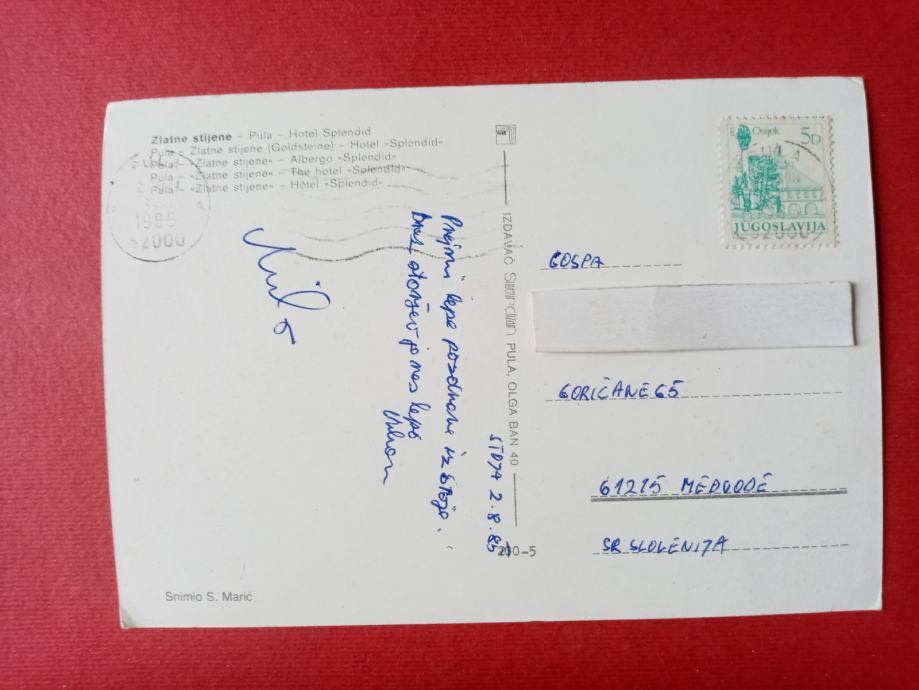 Zlatne stijene – Pula – Hotel Splendid
Pula – Zlatne stijene (Goldsteine) – Hotel »Splendid«
Pula – »Zlatne stijene« – Albergo »Splendid«
Pula – »Zlatne stijene« – The hotel »Splendid«
Pula – »Zlatne stijene« – Hôtel »Splendid«
1985
52000
Osijek
5D
JUGOSLAVIJA
IZDAVAČ PULA, OLGA BAN 40
STOJA 2.8.85
Prejmi lepe pozdrave iz Stoje.
je nas lepo
GOSPA
GORIČANE 65
61215 MEDVODE
SR SLOVENIJA
200-5
Snimio S. Marić